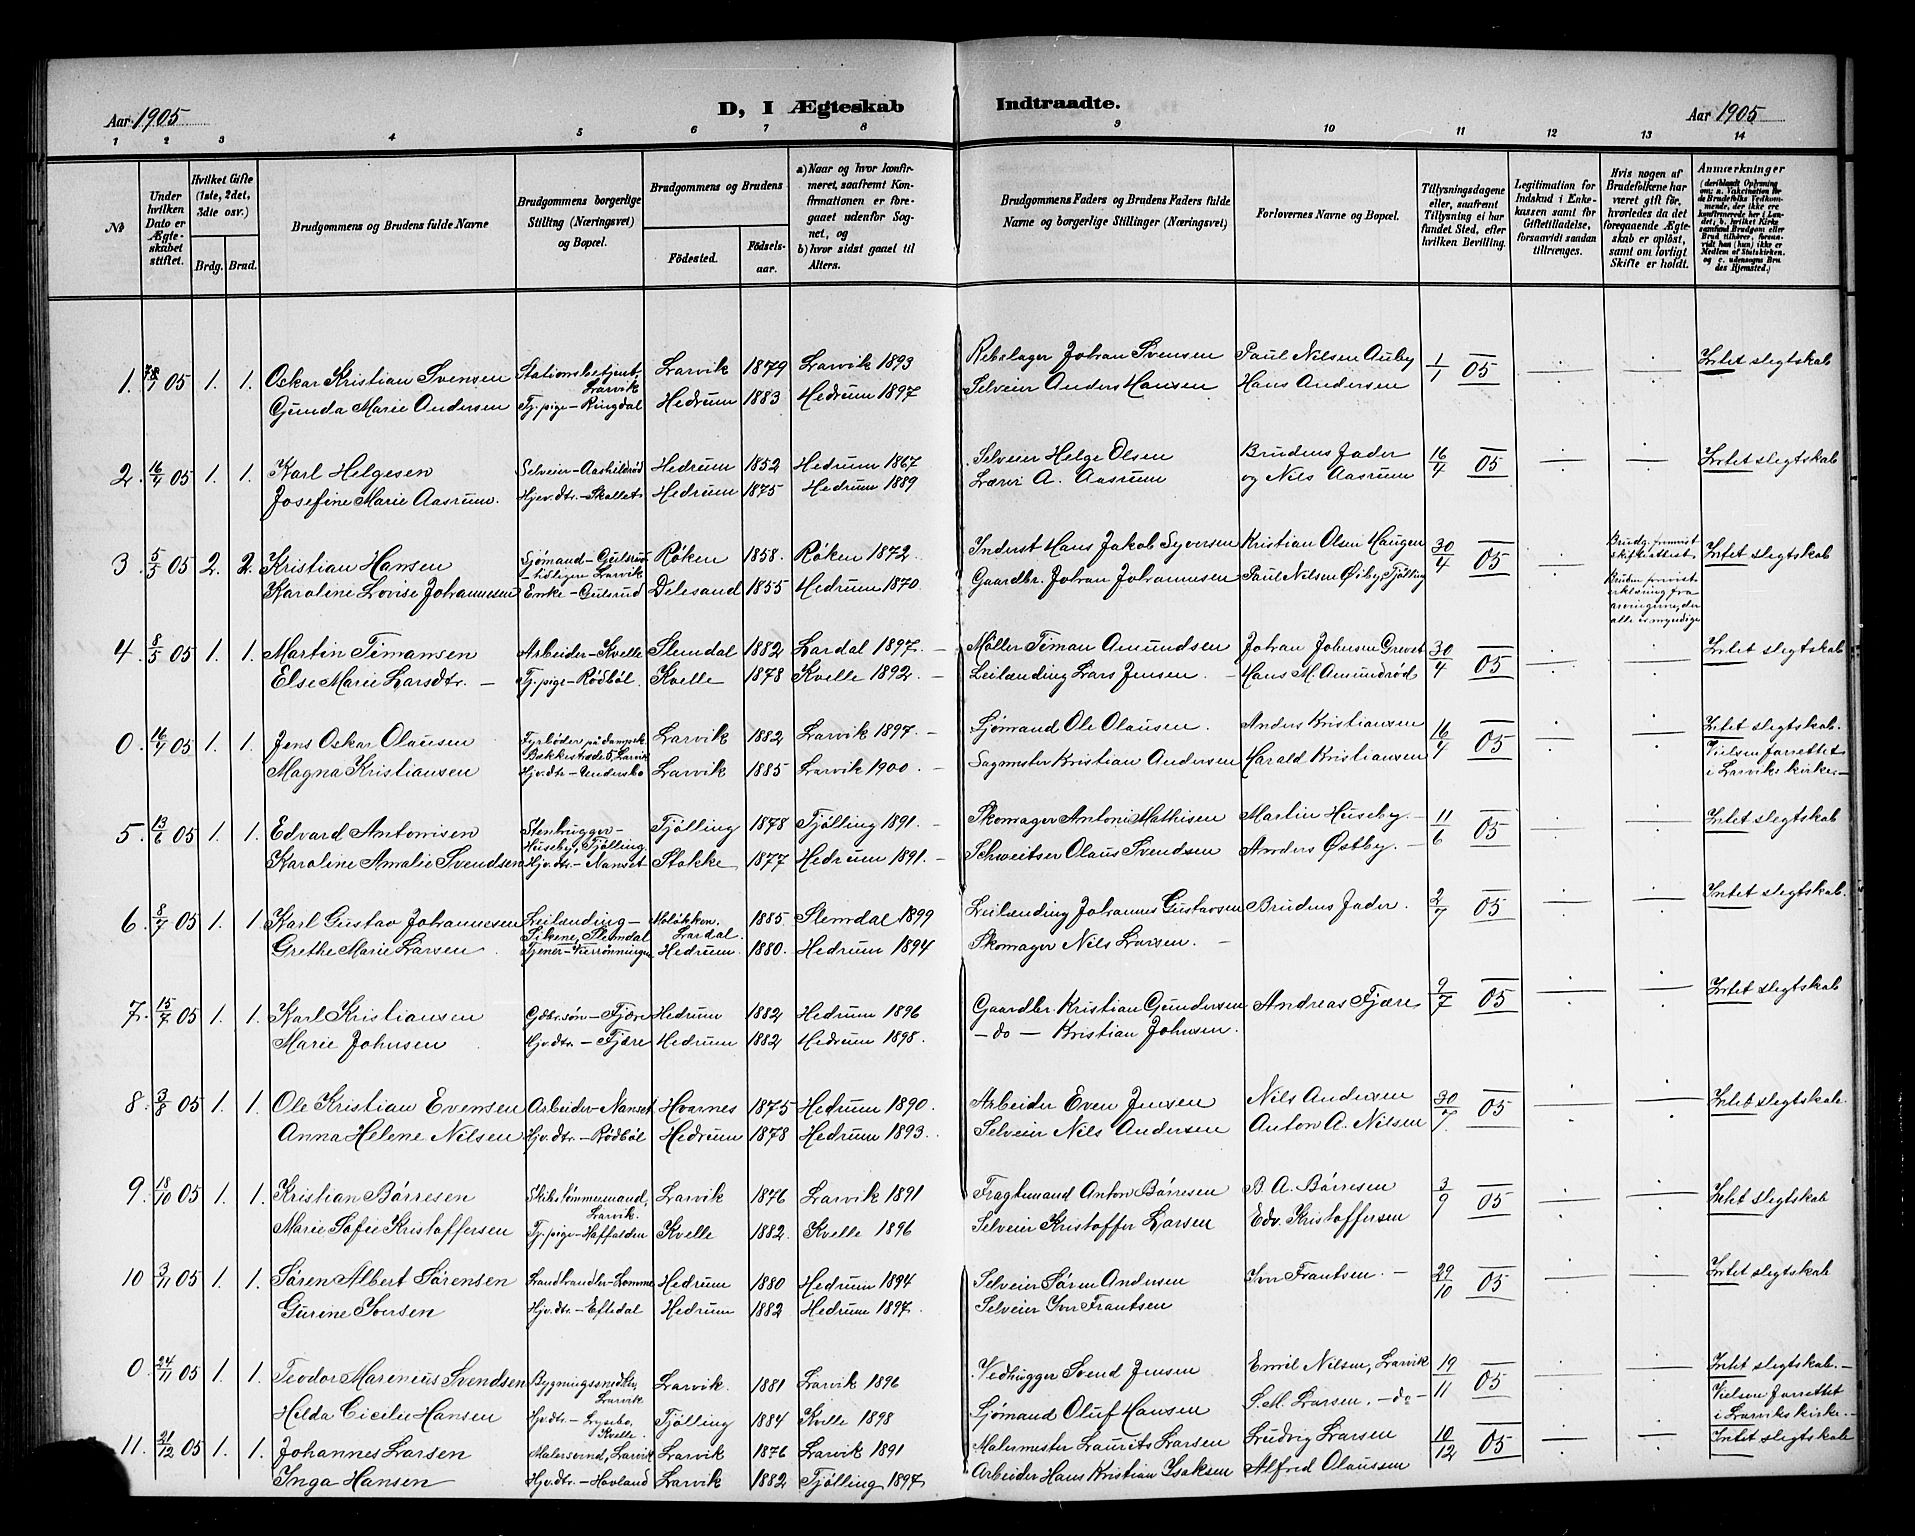 Aar 1905
D, I Ægteskab
Indtraadte.
Aar 1905
1 2 3 4 5 6 7 8 9 10 11 12 13 14
No
Under hvilken Dato er Ægteskabet stiftet.
Hvilket Gifte (1ste, 2det, 3die osv.)
Brdg. Brud.
Brudgommens og Brudens fulde Navne
Brudgommens borgerlige Stilling (Næringsvei) og Bopæl.
Brudgommens og Brudens
Födested.
Födselsaar.
a) Naar og hvor konfirmeret, saafremt Konfirmationen er foregaaet udenfor Sognet, og
b) hvor sidst gaaet til Alters.
Brudgommens Faders og Brudens Faders fulde Navne og borgerlige Stillinger (Næringsvei)
Forlovernes Navne og Bopæl.
Tillysningsdagene eller, saafremt Tillysning ei har fundet Sted, efter hvilken Bevilling.
Legitimation for Indskud i Enkekassen samt for Giftetilladelse, forsaavidt saadan tiltrænges.
Hvis nogen af Brudefolkene har været gift för, hvorledes da det foregaaende Ægteskab er oplöst, samt om lovligt Skifte er holdt.
Anmærkninger
(deriblandt Oplysning om: a. Vakcination for de Brudefolks Vedkommende, der ikke ere konfirmerede her i Landet, b. hvilket Kirkesamfund Brudgom eller Brud tilhörer, forsaavidt han (hun) ikke er Medlem af Statskirken, og c. udensogns Brudes Hjemsted.)
1. 05 1. 1. Oskar Kristian Svensen Stationsbetjent, Larvik Larvik 1879 Larvik 1893 Rebslager Johan Svensen Paul Nilsen Auby 1/1 05 Intet slegtskab
Gunda Marie Andersen Tj.pige - Ringdal Hedrum 1883 Hedrum 1897 Selveier Anders Hansen Hans Andersen
2. 16/4 05 1. 1. Karl Helgesen Selveier - Aashildrød Hedrum 1852 Hedrum 1867 Selveier Helge Olsen Brudens Fader 16/4 05 Intet slegtskab
Josefine Marie Aasrum. Hjev.dtr. - Skallet Hedrum 1875 Hedrum 1889 A. Aasrum og Nils Aasrum
3. 5/5 05 2. 2. Kristian Hansen Sjömand - Gulsrud - tidligere Larvik Røken 1858. Røken 1872 Inderst Hans Jakob Syversen Kristian Olsen Haugen 30/4 05 Brudg. fremvist skifteattest. Intet slegtskab
Karoline Lovise Johannesen Enke - Gulsrud Delesand 1855 Hedrum 1870 Gaardbr. Johan Johannesen Paul Nilsen Øiby, Tjölling Bruden fremvist erklæring fra arvingerne, der alle er myndige
4. 8/5 05 1. 1. Martin Timansen Arbeider - Kvelle Slemdal 1882 Lardal 1897. - Møller Timan Amundsen Johan Johnsen Grevet 30/4 05 Intet slegtskab
Else Marie Larsdtr. - Tj.pige - Rödböl. Kvelle 1878 Kvelle 1892. - Leilænding Lars Jensen. - Hans M. Amundröd
0. 16/4 05 1. 1. Jens Oskar Olausen Fyrböder på dampsk. Bøkkestræde 5, Larvik Larvik 1882 Larvik 1897. - Sjömand Ole Olausen. Anders Kristiansen 16/4 05 Intet slegtskab.
Magna Kristiansen Hjv.dtr. - Undersbo Larvik 1885 Larvik 1900. - Sagmester Kristian Andersen Harald Kristiansen Vielsen forrettet i Larviks kirke. -
5. 13/6 05 1. 1. Edvard Antonisen Stenhugger - Huseby, Tjölling. Tjölling 1878 Tjölling 1891. - Skomager Antoni Mathisen Martin Huseby. - 11/6 05 Intet slegtskab
Karoline Amalie Svendsen Hjv.dtr. - Nanset Stokke 1877 Hedrum 1891. - Schweitser Olaus Svendsen Anders Østby. -
6. 8/7 05 1. 1. Karl Gustav Johannesen Leilænding - Slemdal Lardal. 1885. Slemdal 1899 Leilænding Johannes Gustavsen Brudens Fader. 2/7 05 Intet slegtskab.
Grethe Marie Larsen Tjener - Hedrum. 1880. Hedrum 1894 Skomager Nils Larsen. -
7. 15/7 05 1. 1. Karl Kristiansen Gdbr.sön - Fjære Hedrum 1882 Hedrum 1896 Gaardbr. Kristian Gundersen Andreas Fjære 9/7 05 Intet slegtskab
Marie Johnsen Hjv.dtr. - Fjære Hedrum 1882 Hedrum 1898. - do - Kristian Johnsen.
8. 3/8 05 1. 1. Ole Kristian Evensen Arbeider - Nanset Hvarnes 1875 Hedrum 1890. Arbeider Even Jensen Nils Andersen 30/7 05 Intet slegtskab.
Anna Helene Nilsen Hjv.dtr. - Rödböl Hedrum 1878 Hedrum 1893. Selveier Nils Andersen Anton A. Nilsen
9. 18/10 05 1. 1. Kristian Börresen Skibstömmermand, Larvik. Larvik 1876 Larvik 1891 Fragtemand Anton Börresen B. A. Börresen 3/9 05 Intet slegtskab
Marie Sofie Kristoffersen Tj.pige - Haffalden Kvelle 1882. Kvelle 1896 Selveier Kristoffer Larsen Edv. Kristoffersen
10 3/11 05 1. 1. Sören Albert Sörensen Landhandler - Lomme Hedrum 1880 Hedrum 1894 Selveier Sören Andersen Iver Frantsen. - 29/10 05 Intet slegtskab
Gurine Iversen Hjv.dtr. - Eftedal Hedrum 1882 Hedrum 1897. Selveier Iver Frantsen
0. 24/11 05 1. 1. Teodor Marenius Svendsen Bygningssnedker, Larvik Larvik. 1881 Larvik 1896 Vedhugger Svend Jensen Emil Nilsen, Larvik 19/11 05 Intet slegtskab. -
Hilda Cicilie Hansen Hjv.dtr. - Lysebo, Kvelle. Tjölling 1884 Kvelle 1898 Sjömand Oluf Hansen S. M. Larsen. - do - Vielsen forrettet i Larviks kirke. -
11. 21/12 05 1. 1. Johannes Larsen Malersvend, Larvik Larvik 1876 Larvik 1891 Malermester Laurits Larsen Ludvig Larsen 10/12 05 Intet slegtskab
Inga Hansen Hjv.dtr. - Hovland Larvik 1882 Tjölling 1897 Arbeider Hans Kristian Isaksen Alfred Olaussen